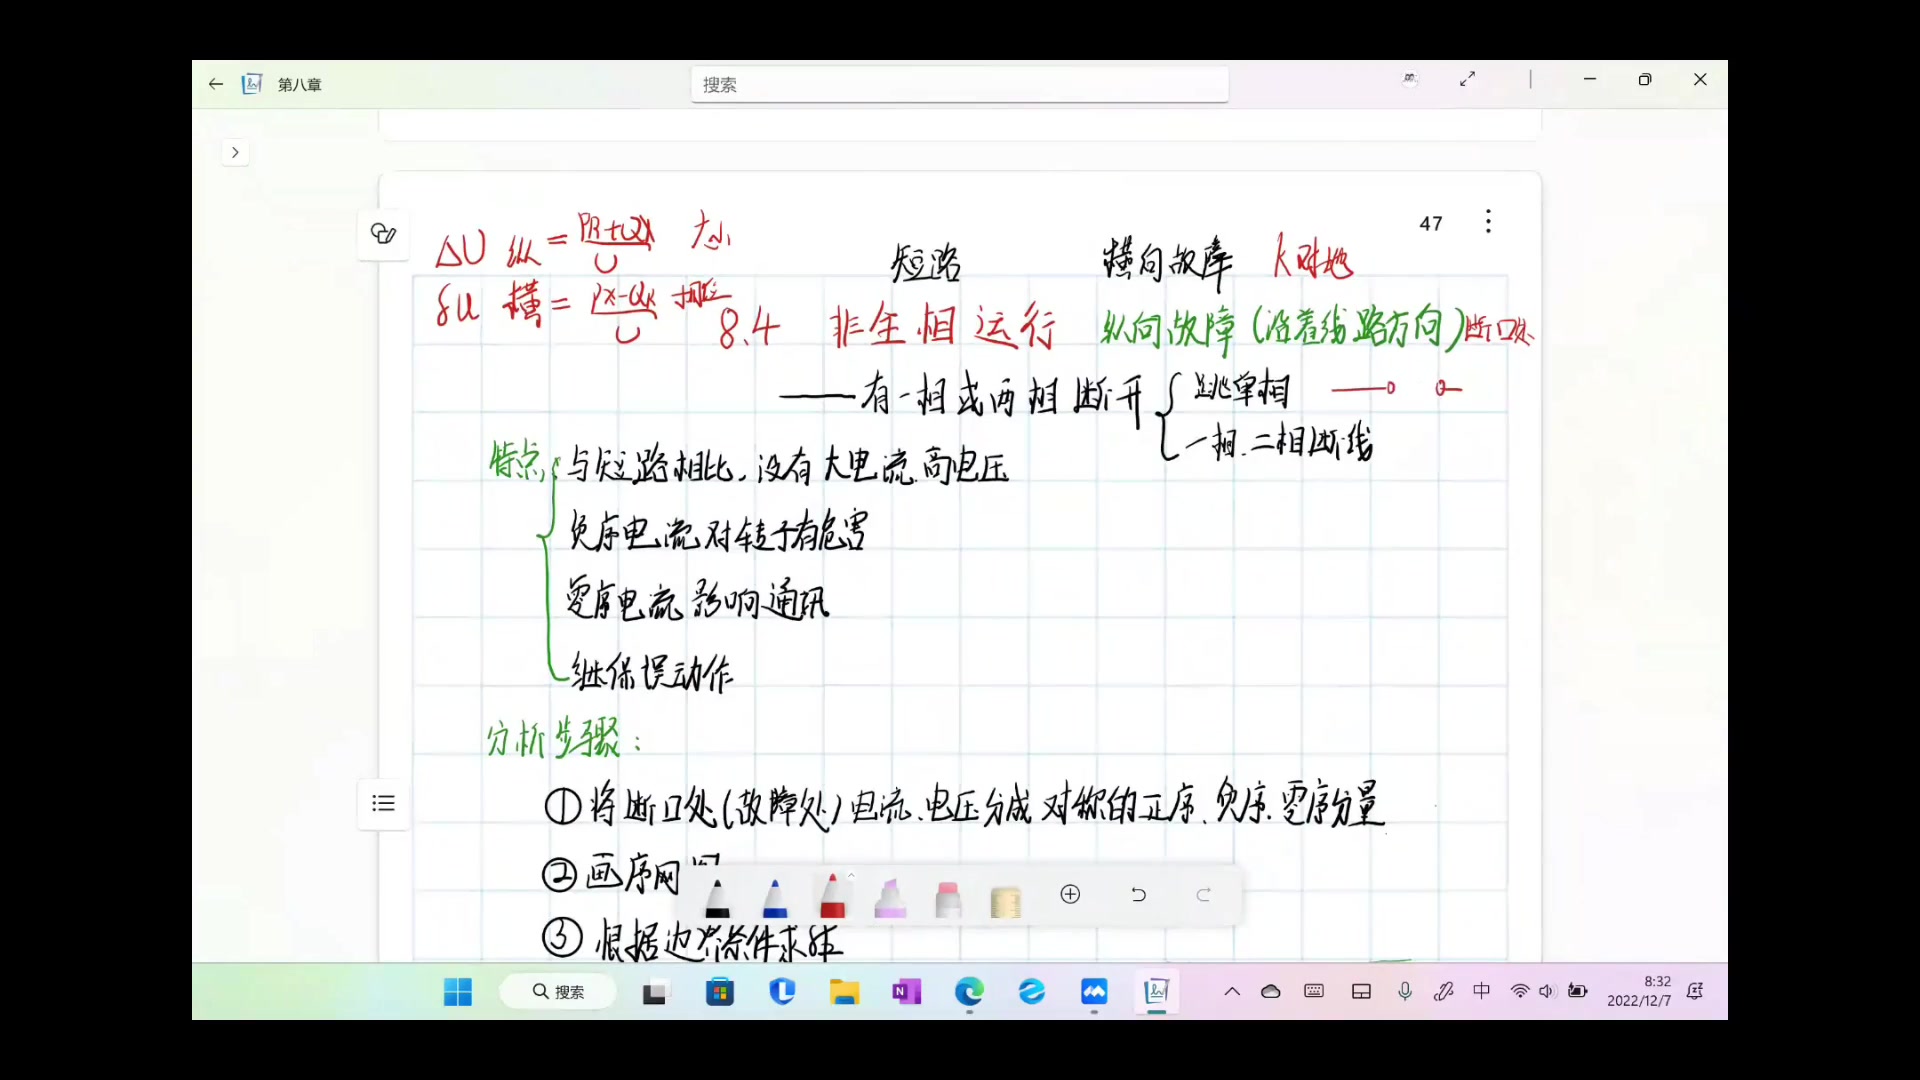 第八章
搜索
47
ΔU 纵 = PR+QX / U 大小
短路 横向故障 k对地
δU 横 = PX-QR / U 相位
8.4 非全相运行 纵向故障(沿着线路方向)断口处
——有一相或两相断开 { 跳单相
一相、二相断线
特点: 与短路相比,没有大电流、高电压
负序电流对转子有危害
零序电流影响通讯
继保误动作
分析步骤:
①将断口处(故障处)电流、电压分成对称的正序、负序、零序分量
②画序网图
③根据边界条件求解
搜索
中
8:32
2022/12/7